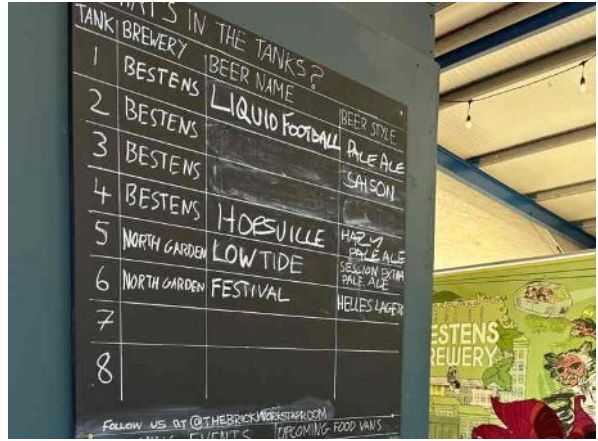 WHAT'S IN THE TANKS?
TANK BREWERY BEER NAME BEER STYLE
1 BESTENS LIQUID FOOTBALL PALE ALE
2 BESTENS SAISON
3 BESTENS
4 BESTENS HOPSVILLE HAZY PALE ALE
5 NORTH GARDEN LOW TIDE SESSION EXTRA PALE ALE
6 NORTH GARDEN FESTIVAL HELLES LAGER
7
8
FOLLOW US AT @THEBRICKWORKSTAPROOM
EVENTS UPCOMING FOOD VANS
ESTENS
REWERY